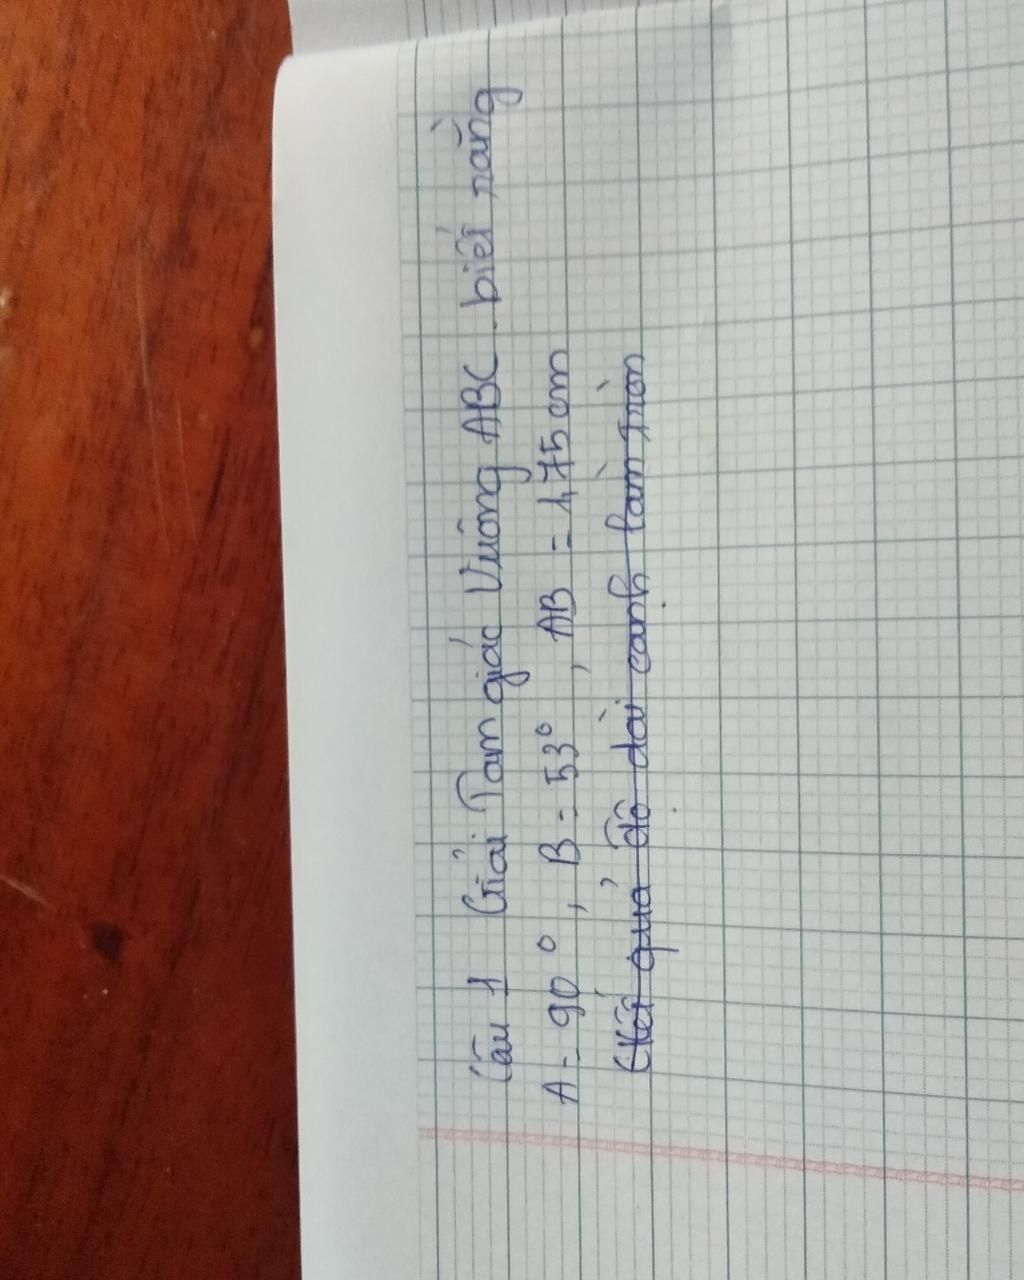 Câu 1 Giải Tam giác Vuông ABC biết rằng
A = 90°, B = 53°, AB = 1,75 cm
(Kết quả độ dài cạnh làm tròn